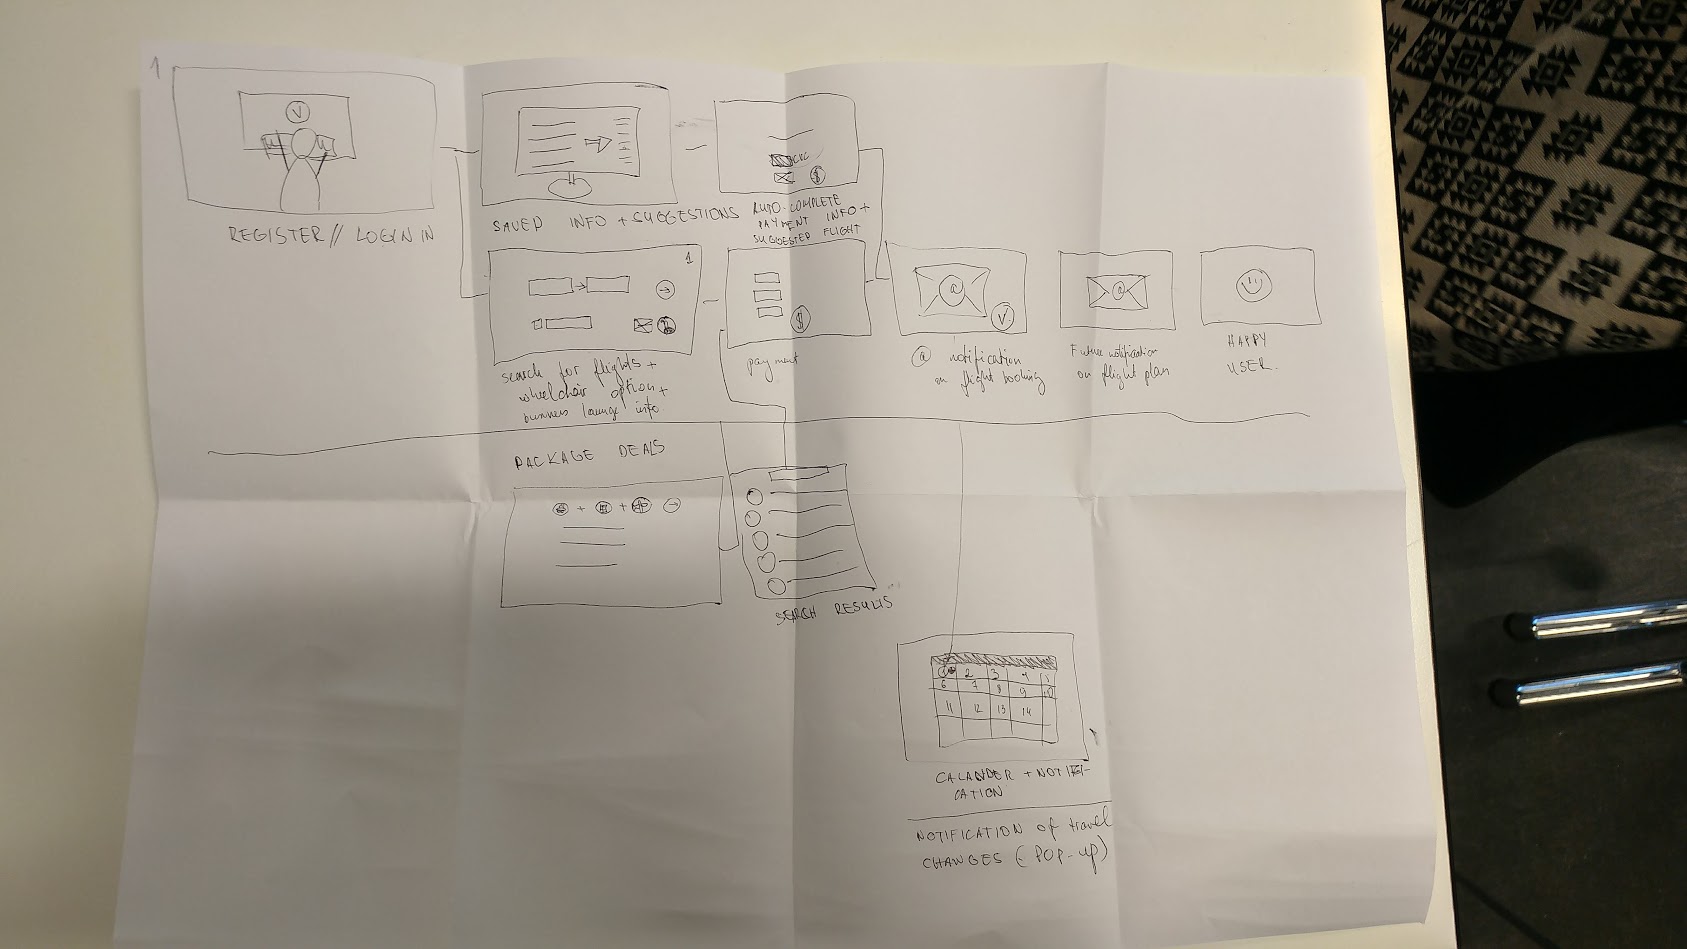 1
REGISTER // LOGIN IN
SAVED INFO + SUGGESTIONS
CVC
$
AUTO-COMPLETE
PAYMENT INFO +
SUGGESTED FLIGHT
1
search for flights +
wheelchair option +
business lounge info
$
payment
@
@ notification
on flight booking
@
Future notification
on flight plan
HAPPY
USER.
PACKAGE DEALS
+ +
SEARCH RESULTS
1 2 3 4 5
6 7 8 9 10
11 12 13 14
CALANDER + NOTIFI-
CATION
NOTIFICATION of travel
CHANGES (POP-up)